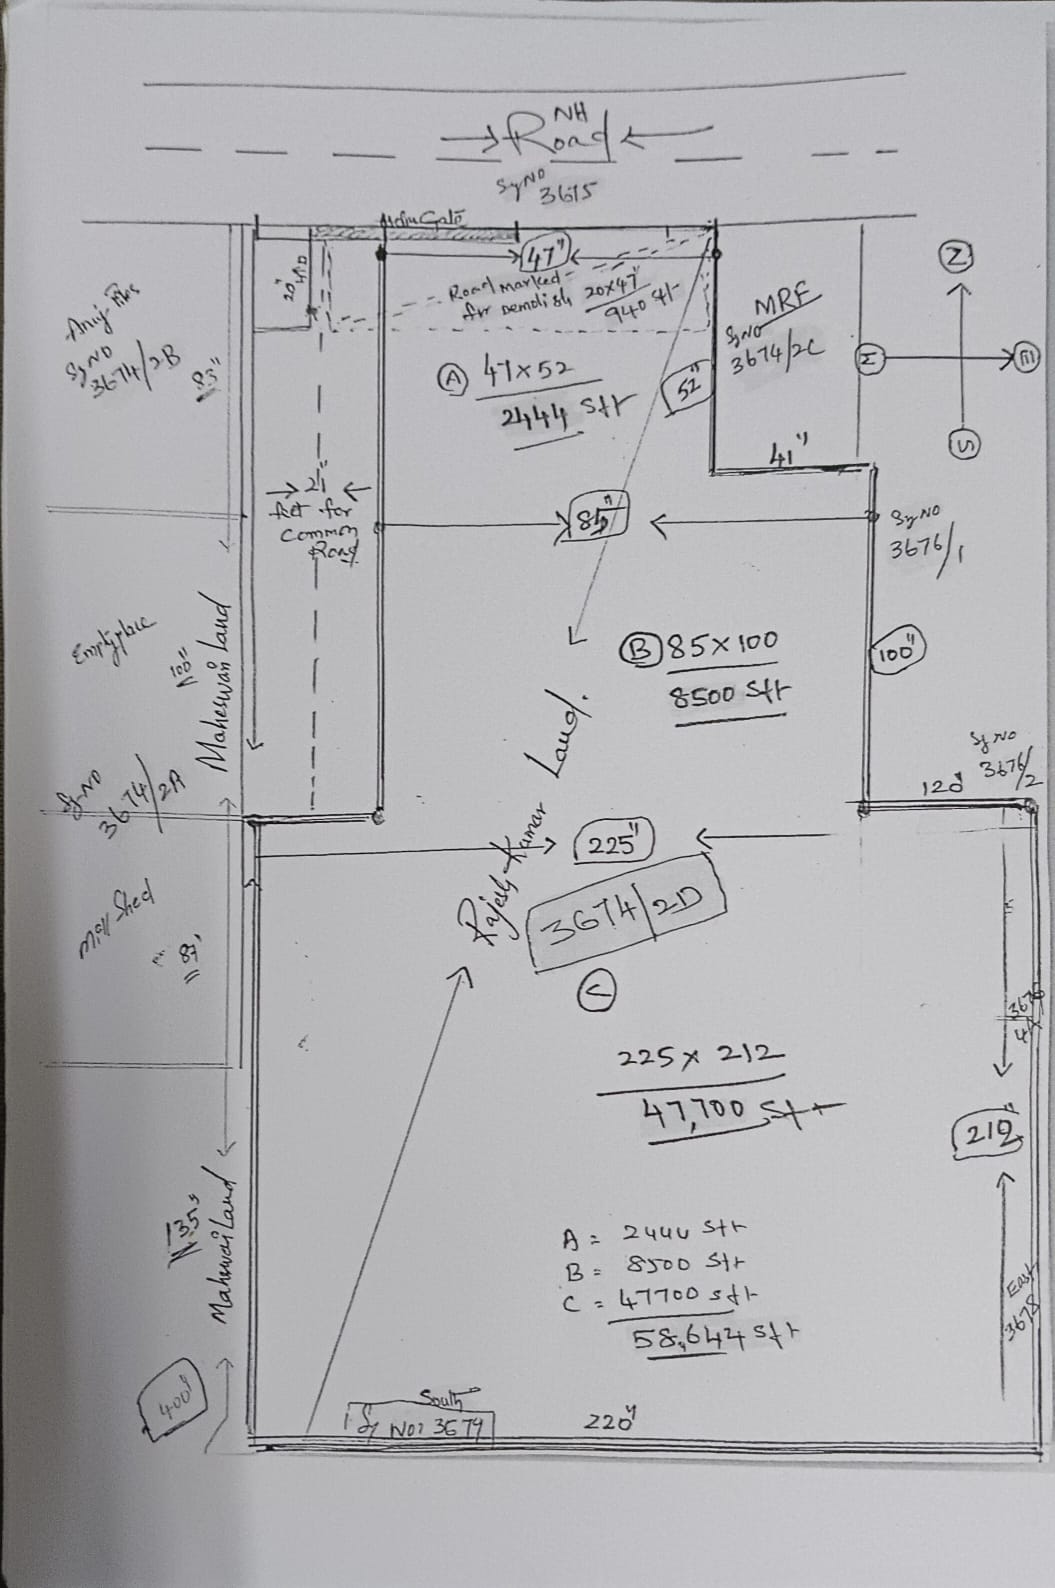 NH
Road
Sy NO
3675
Main Gate
47"
20"
Road marked
for Demolish
20x47"
940 sft
MRF
Sy NO
3674/2C
N
E
S
Sy NO
3674/2B
83"
A 47x52
2444 sft
52"
41"
21"
feet for
Common
Road
85"
Sy NO
3676/1
Empty place
100"
Maheswari Land
B 85x100
8500 sft
100"
Sy NO
3674/2A
Sy NO
3676/2
120"
Rajesh Kumar Land.
225"
3674/2D
C
Mill Shed
87'
225x 212
47,700 sft
212"
135"
Maheswari Land
A = 2444 sft
B = 8500 sft
C = 47700 sft
58,644 sft
East
3678
400"
South
Sy No: 3679
220"